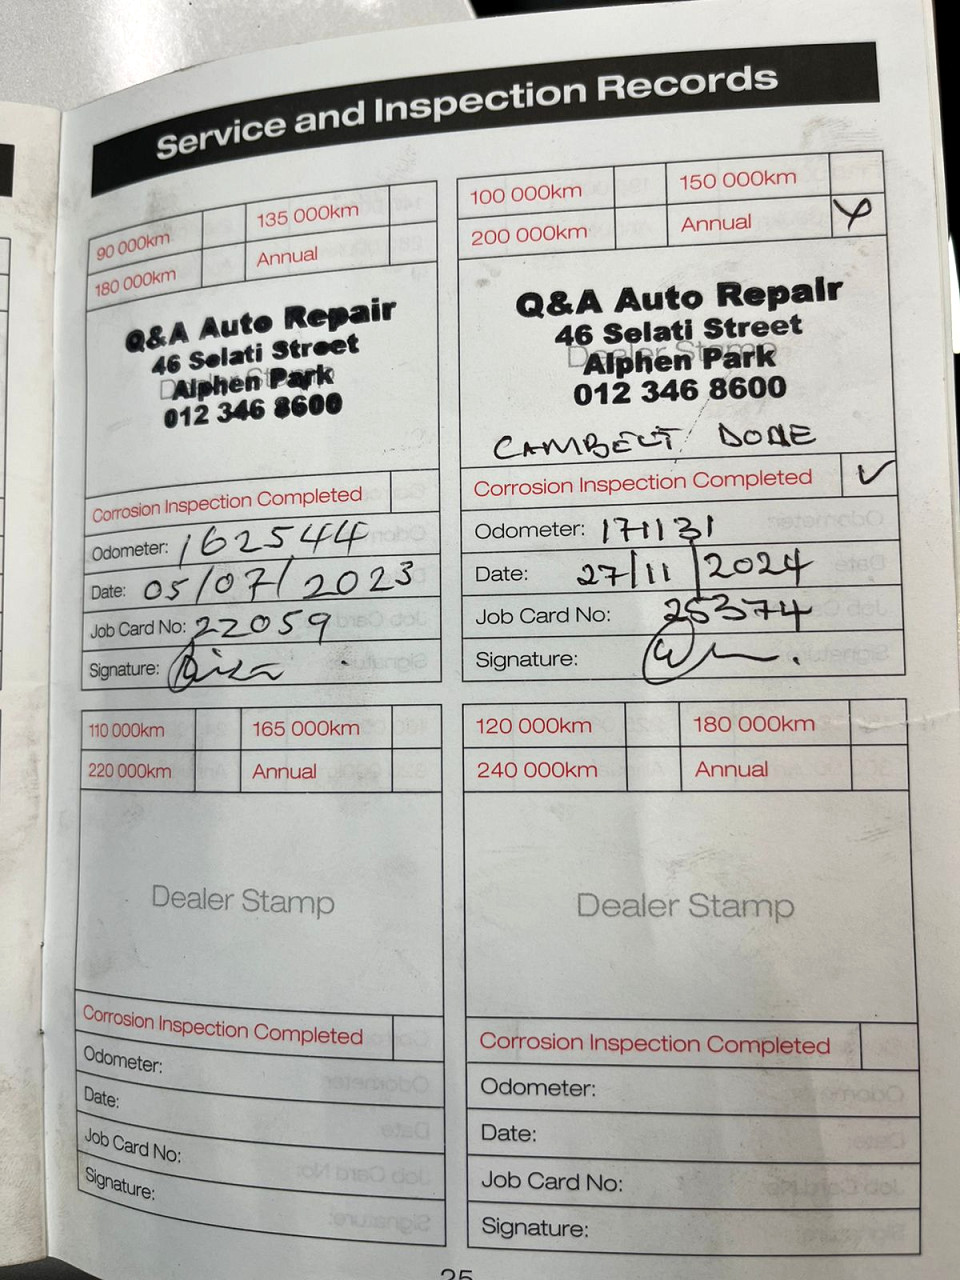 Service and Inspection Records
90 000km 135 000km
180 000km Annual
Q&A Auto Repair
46 Selati Street
Alphen Park
012 346 8600
Corrosion Inspection Completed
Odometer: 162544
Date: 05/07/2023
Job Card No: 22059
Signature:
100 000km 150 000km
200 000km Annual
Q&A Auto Repair
46 Selati Street
Dealer Stamp
Alphen Park
012 346 8600
CAMBELT DONE
Corrosion Inspection Completed ✓
Odometer: 171131
Date: 27/11/2024
Job Card No: 25374
Signature:
110 000km 165 000km
220 000km Annual
Dealer Stamp
Corrosion Inspection Completed
Odometer:
Date:
Job Card No:
Signature:
120 000km 180 000km
240 000km Annual
Dealer Stamp
Corrosion Inspection Completed
Odometer:
Date:
Job Card No:
Signature:
25